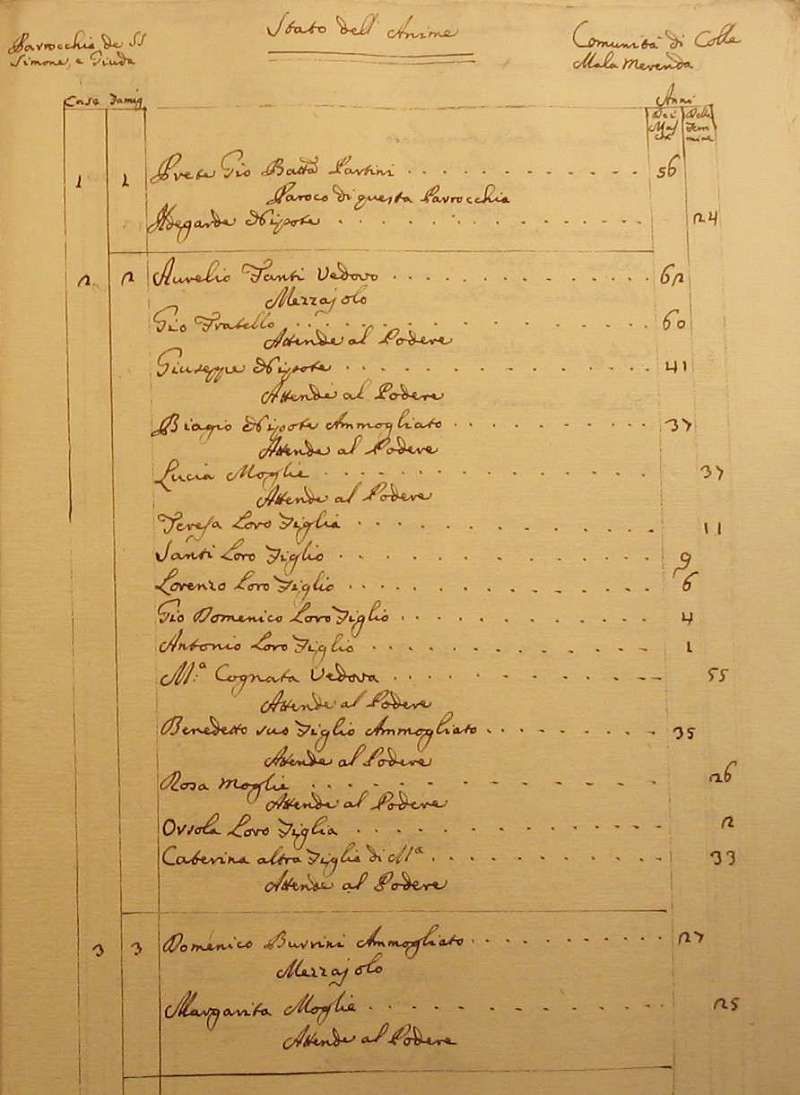 Parrocchia de SS
Simone, e Giuda
Stato dell' Anime
Comunità di Colle
Mala Merenda
Case Famig
Anni
Dei Mas
Delle Fem
mine
1 1 Prete Gio Batta Partini 56
Paroco di questa Parrocchia
Nipote 24
2 2 Aurelio Fanti Vedovo 62
Mezzajolo
Gio Fratello 60
Attende al Podere
Giuseppe Nipote 41
Attende al Podere
Biagio Nipote Ammogliato 37
Attende al Podere
Lucia Moglie 37
Attende al Podere
Teresa Loro Figlia 11
Santi Loro Figlio 9
Lorenzo Loro Figlio 6
Gio Domenico Loro Figlio 4
Antonio Loro Figlio 1
M.ª Cognata Vedova 55
Attende al Podere
Benedetto suo Figlio Ammogliato 35
Attende al Podere
Rosa Moglie 26
Attende al Podere
Orsola Loro Figlia 2
Caterina altra Figlia di Mª 33
Attende al Podere
3 3 Domenico Burrini Ammogliato 27
Mezzajolo
Margarita Moglie 25
Attende al Podere